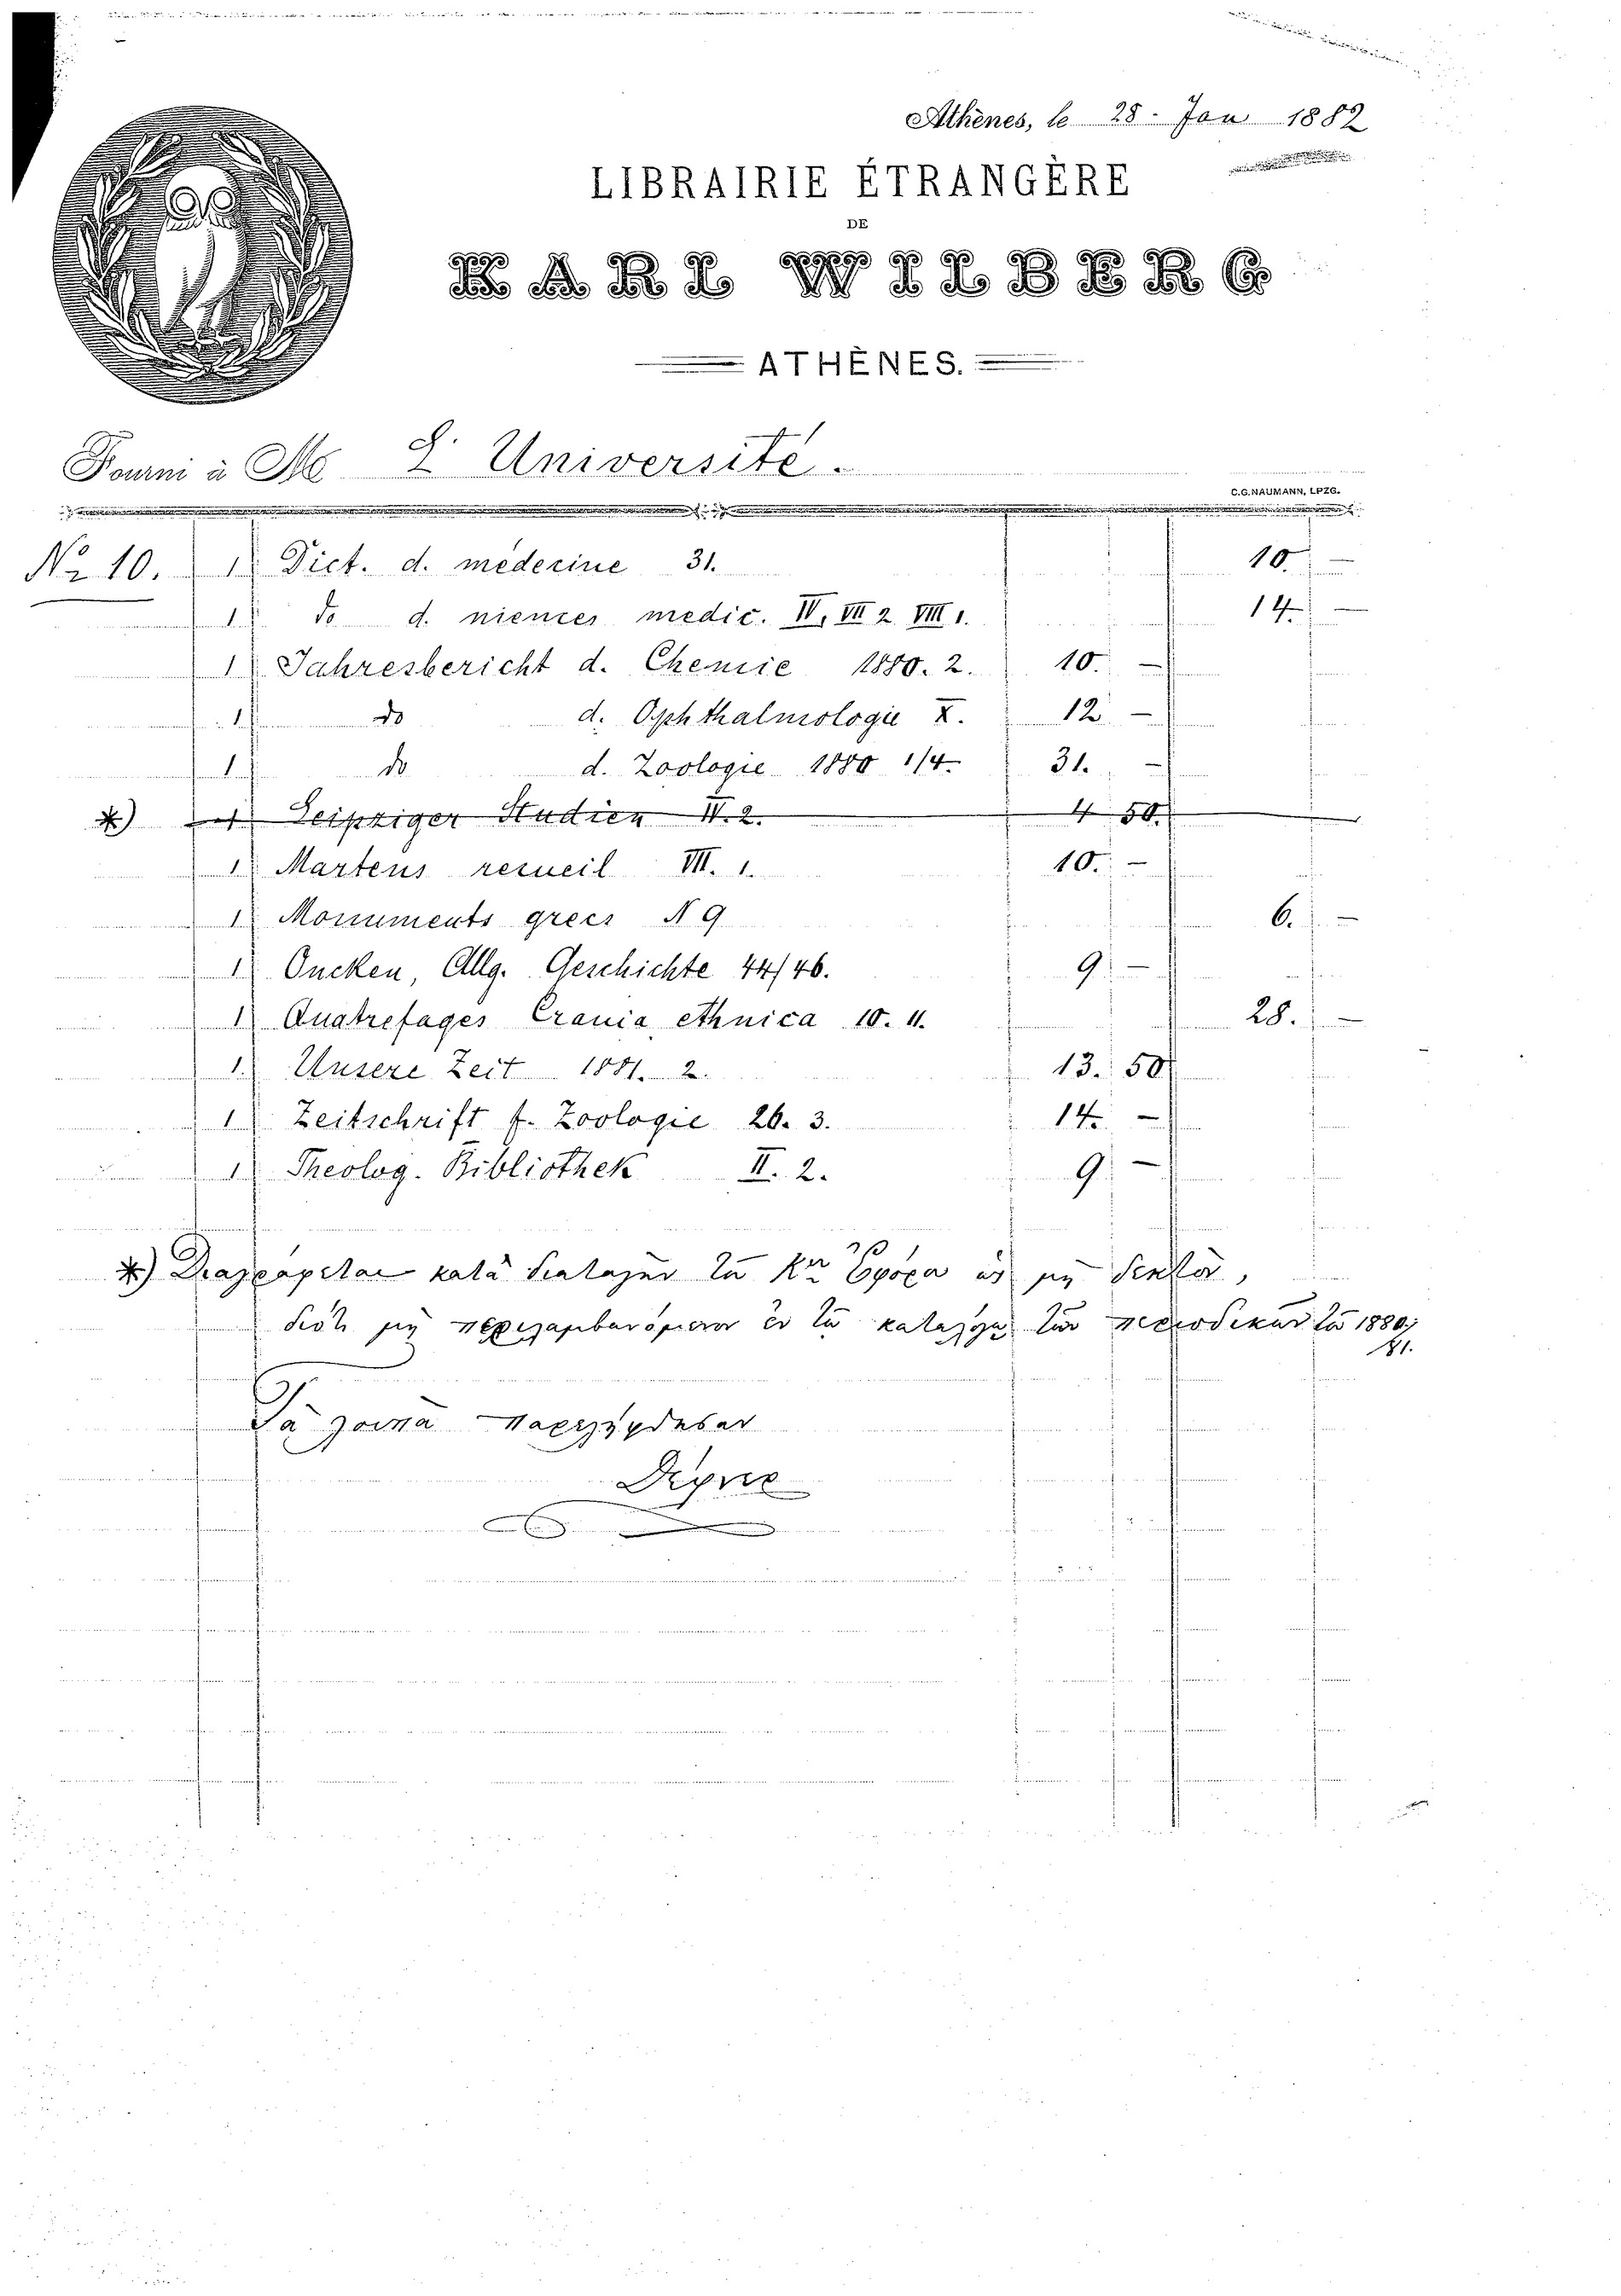 Athènes, le 28. Jan 1882
LIBRAIRIE ÉTRANGÈRE
DE
KARL WILBERG
ATHÈNES.
Fourni à M L' Université.
C.G. NAUMANN, LPZG.
No 10. 1 Dict. d. médecine 31. 10. —
1 do d. siences medic. IV, VII 2 VIII 1. 14. —
1 Jahresbericht d. Chemie 1880. 2. 10. —
1 do d. Ophthalmologie X. 12. —
1 do d. Zoologie 1880 1/4. 31. —
*) 1 Leipziger Studien IV. 2. 4 50.
1 Martens recueil VII. 1. 10. —
1 Monuments grecs N 9 6. —
1 Oncken, Allg. Geschichte 44/46. 9. —
1 Quatrefages Crania ethnica 10. 11. 28. —
1 Unsere Zeit 1881. 2. 13. 50
1 Zeitschrift f. Zoologie 26. 3. 14. —
1 Theolog. Bibliothek II. 2. 9. —
*) Διαγράφεται κατὰ διαταγὴν τοῦ Κου Ἐφόρου ὡς μὴ
διότι μὴ περιλαμβανόμενον ἐν τῷ καταλόγῳ τῶν περιοδικῶν τοῦ 1880/
81.
Τὰ λοιπὰ παρελήφθησαν